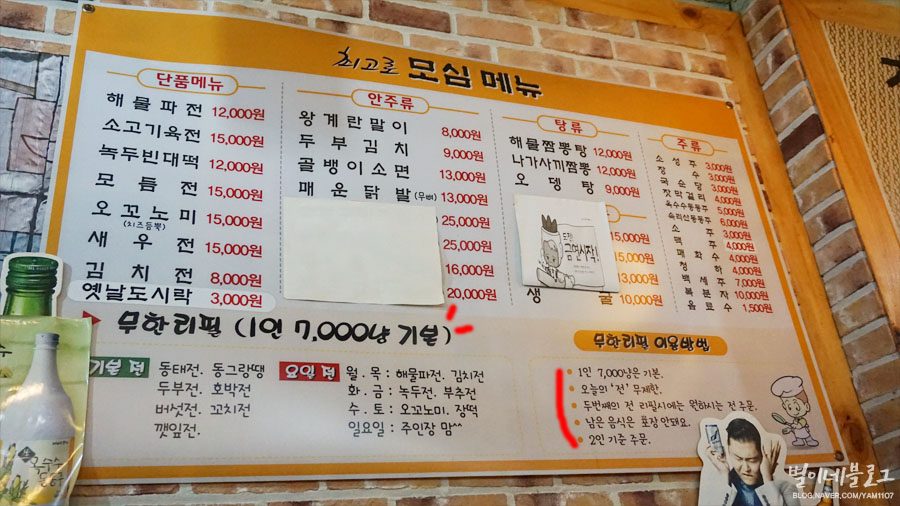 최고로 모심 메뉴
단품메뉴
해물파전 12,000원
소고기육전 15,000원
녹두빈대떡 12,000원
모듬전 15,000원
오꼬노미 15,000원
(치즈듬뿍)
새우전 15,000원
김치전 8,000원
옛날도시락 3,000원
안주류
왕계란말이 8,000원
두부김치 9,000원
골뱅이소면 13,000원
매운닭발(무뼈) 13,000원
25,000원
25,000원
16,000원
20,000원
탕류
해물짬뽕탕 12,000원
나가사끼짬뽕 12,000원
오뎅탕 9,000원
금연시작!
15,000원
13,000원
10,000원
주류
소성주 3,000원
장수 3,000원
국순당 3,000원
잣막걸리 4,000원
옥수수동동주 5,000원
속리산동동주 6,000원
소주 3,000원
맥주 4,000원
매화수 4,000원
청하 4,000원
백세주 7,000원
복분자 10,000원
음료수 1,500원
무한리필 (1인 7,000냥 기본)
기본전
동태전. 동그랑땡
두부전. 호박전
버섯전. 꼬치전
깻잎전.
요일전
월.목 : 해물파전. 김치전
화.금 : 녹두전. 부추전
수.토 : 오꼬노미. 장떡
일요일 : 주인장 맘^^
무한리필 이용방법
1인 7,000냥은 기본.
오늘의 '전' 무제한.
두번째의 전 리필시에는 원하시는 전 주문.
남은 음식은 포장 안돼요.
2인 기준 주문.
별이네블로그
BLOG.NAVER.COM/YAM1107